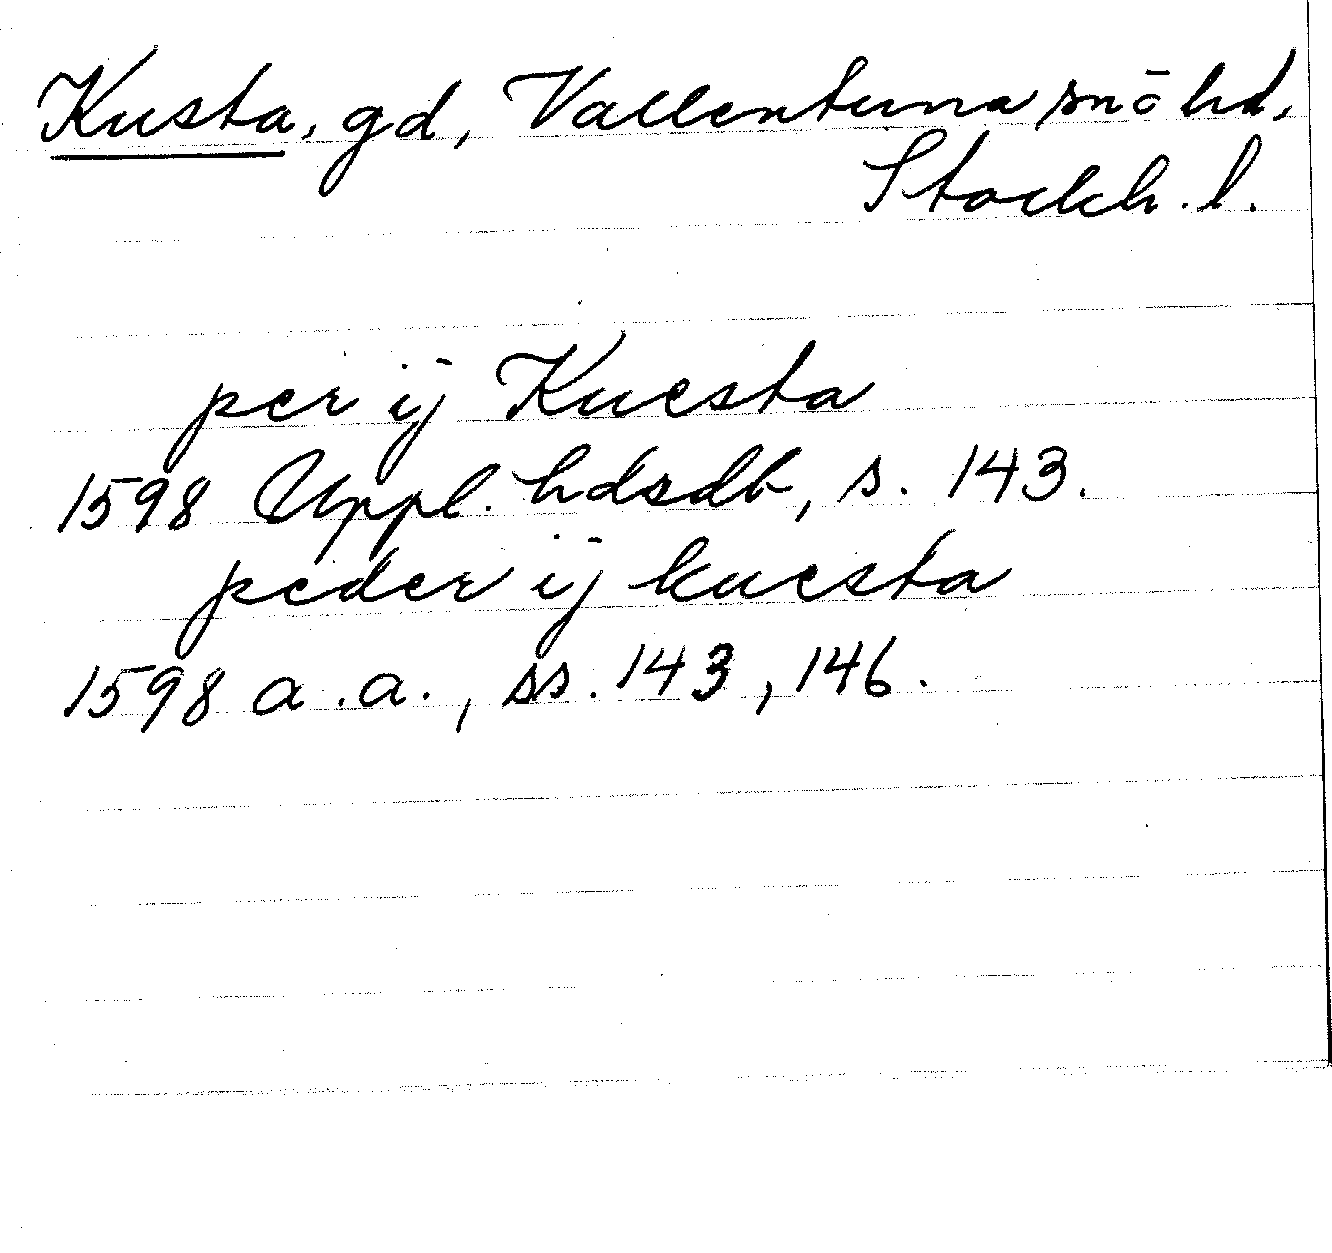 Kusta, gd, Vallentuna sn o hd,
Stockh. l.
per ij Kuesta
1598 Uppl. hdsdb, s. 143.
peder ij kuesta
1598 a.a., ss. 143, 146.